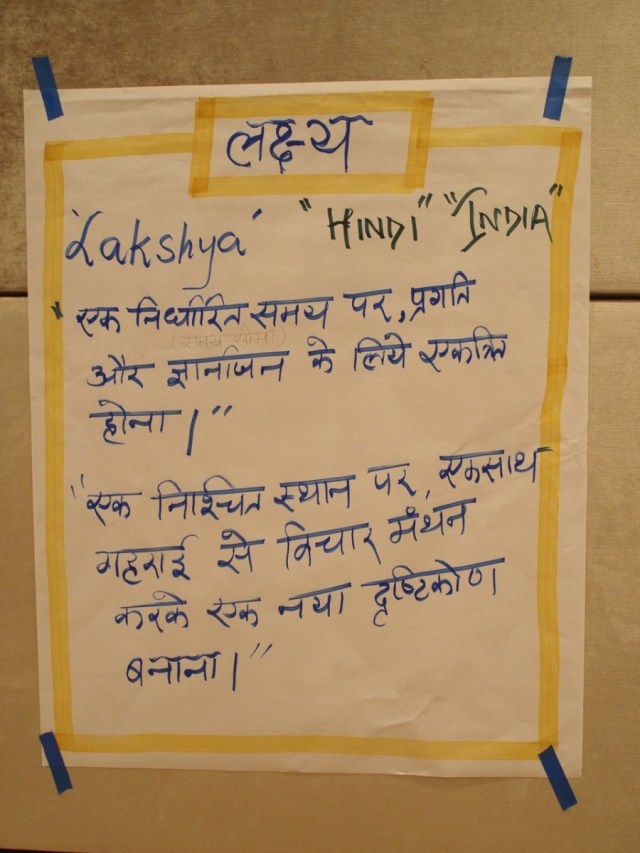 लक्ष्य
'Lakshya' "HINDI" "INDIA"
"एक निर्धारित समय पर, प्रगति
(समय सीमा)
और ज्ञानार्जन के लिये एकत्रित
होना।"
"एक निश्चित स्थान पर, एकसाथ
गहराई से विचार मंथन
करके एक नया दृष्टिकोण
बनाना।"